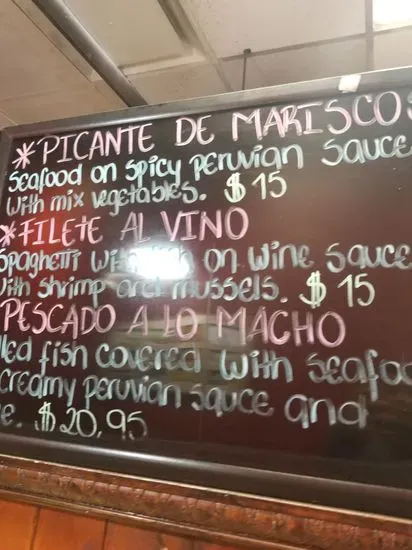 *PICANTE DE MARISCOS
Seafood on spicy Peruvian Sauce
with mix vegetables. $15
*FILETE AL VINO
Spaghetti on wine Sauce
with shrimp and mussels. $15
PESCADO A LO MACHO
fish covered with Seafoo
creamy peruvian sauce and
$20.95